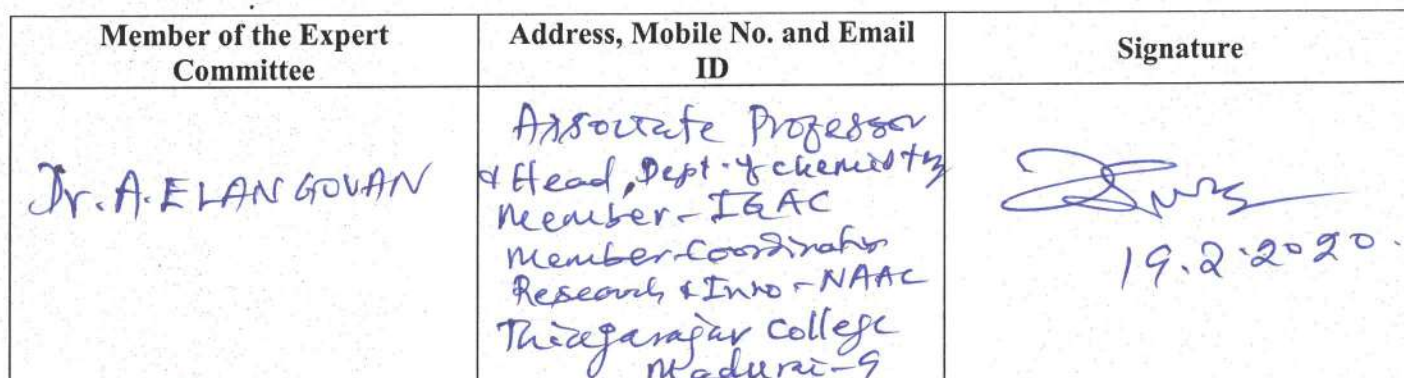 Member of the Expert
Committee
Address, Mobile No. and Email
ID
Signature
Dr. A. ELANGOVAN
Associate Professor
& Head, Dept. of chemistry
Member - IQAC
Member-Coordinator
Research & Inno - NAAC
Thiagarajar College
Madurai-9
19.2.2020.